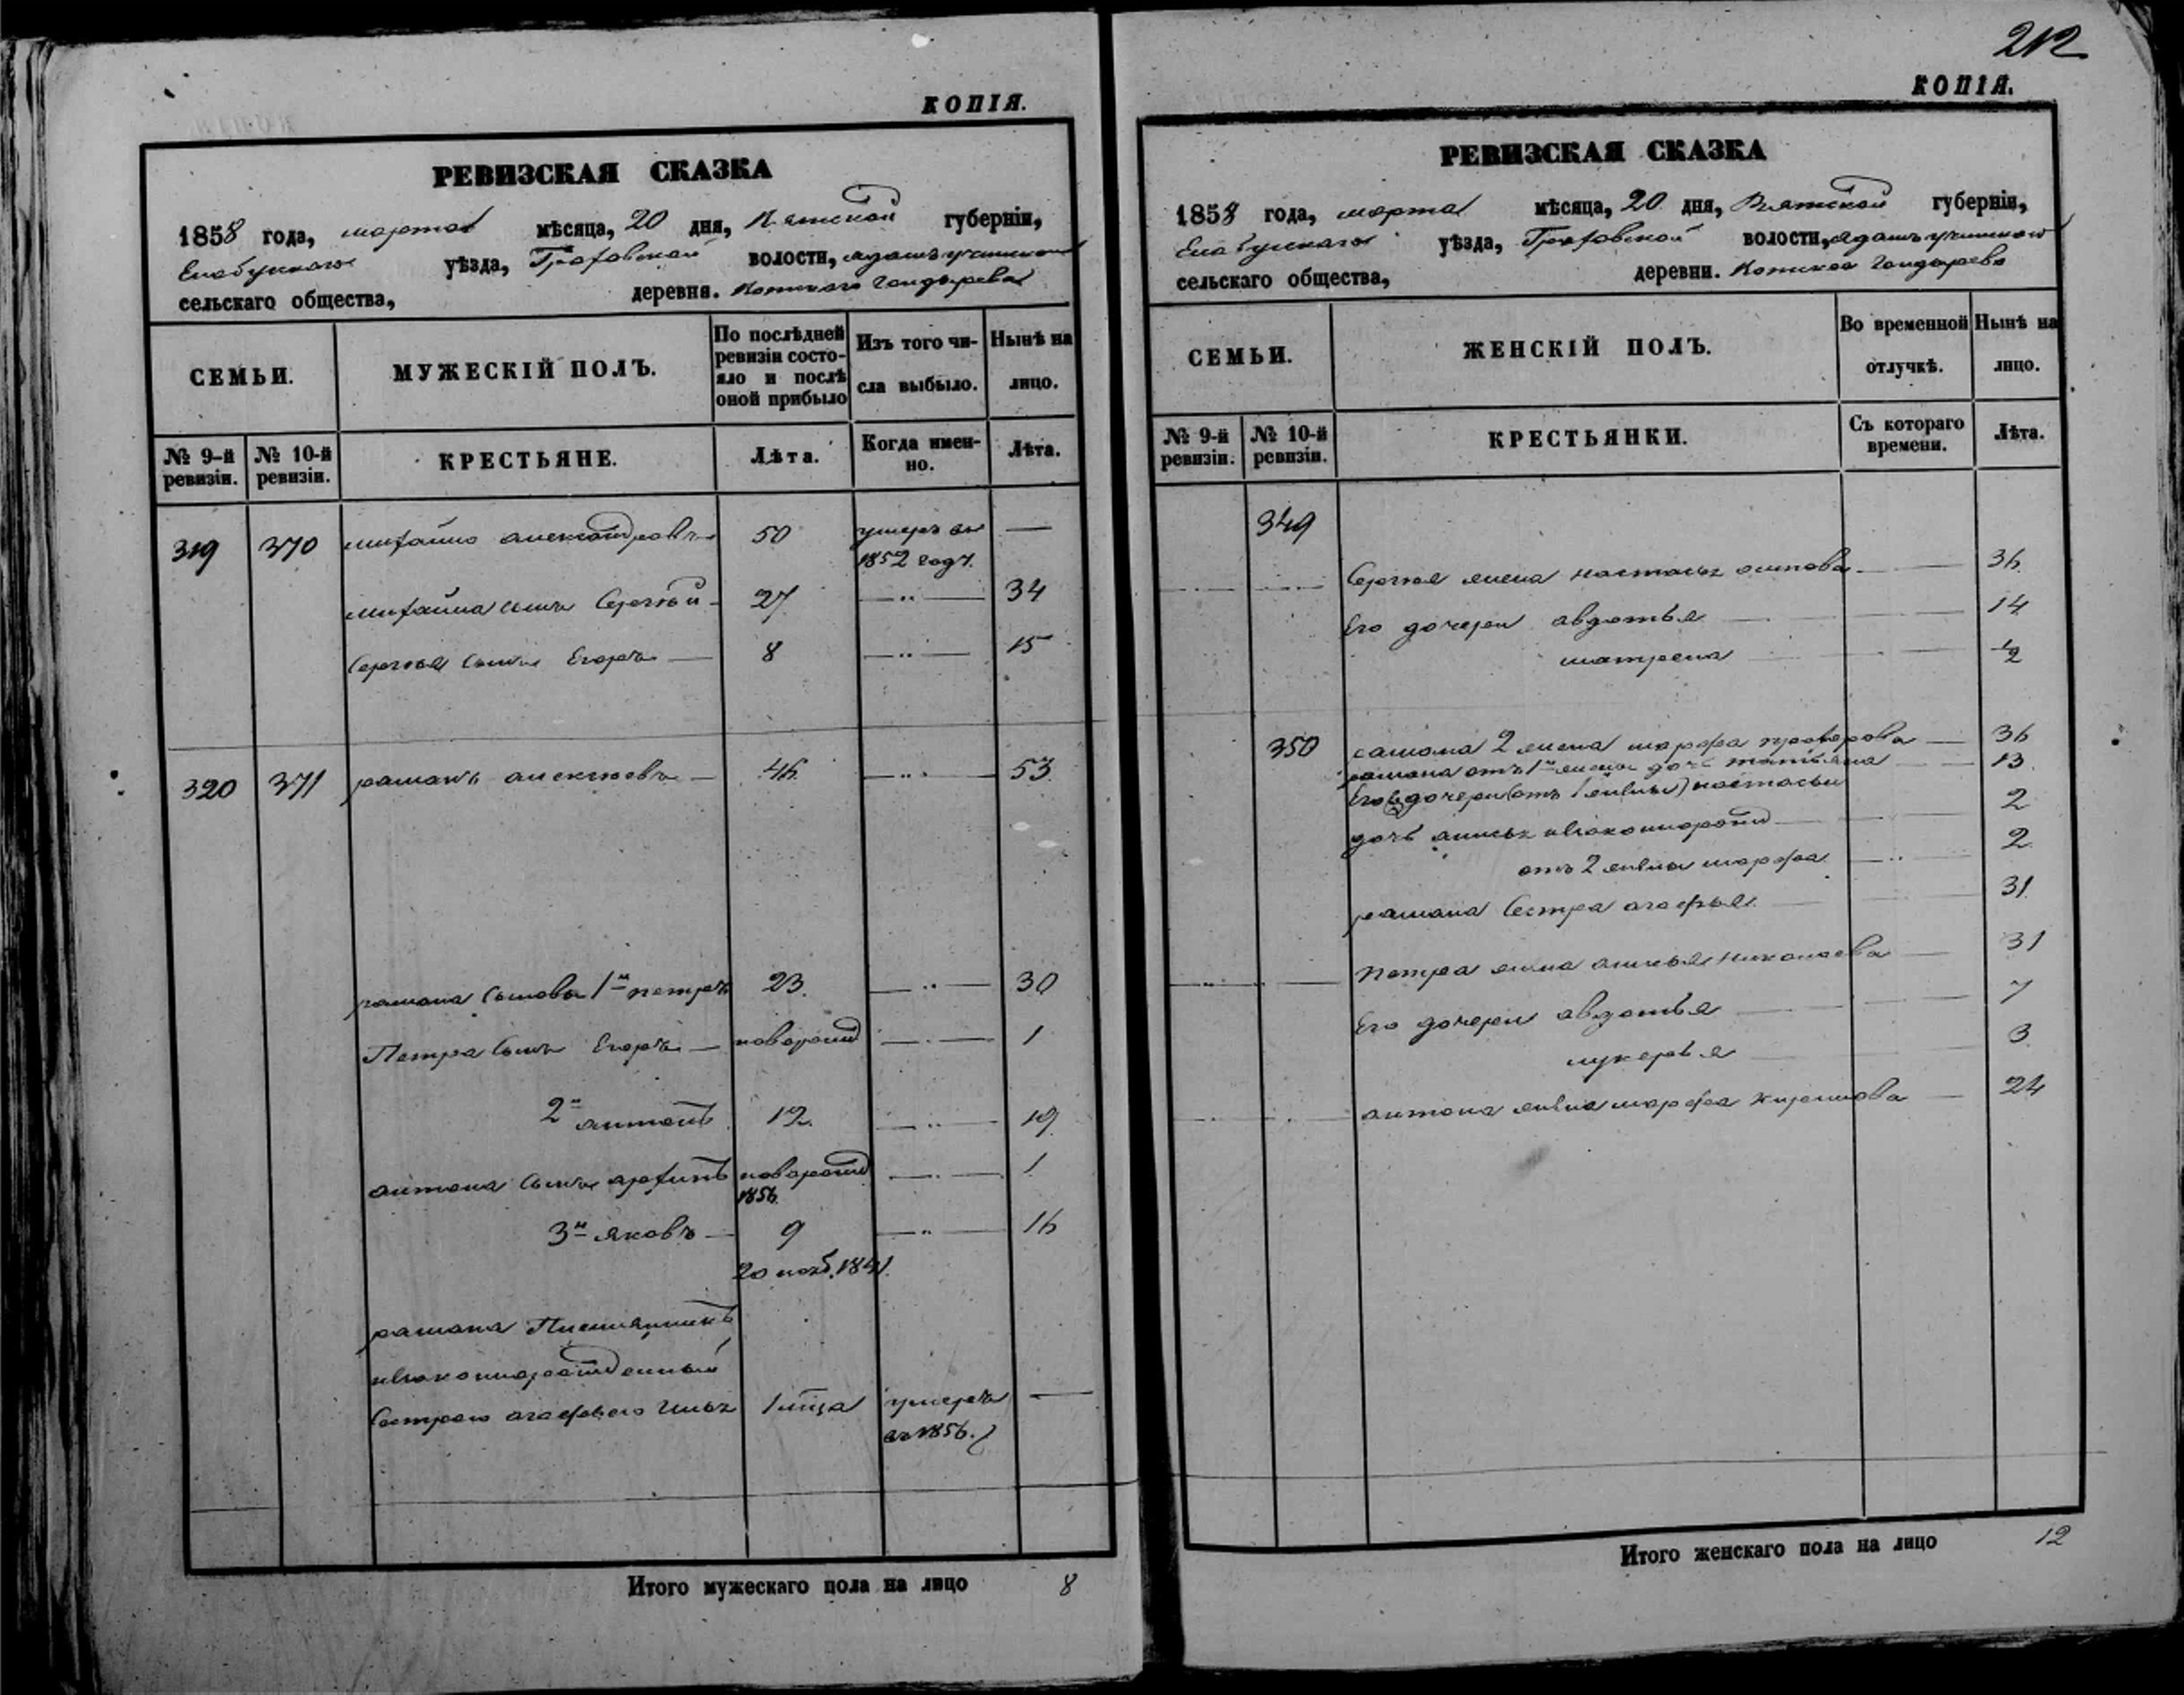 КОПІЯ.
РЕВИЗСКАЯ СКАЗКА
1858 года, марта мѣсяца, 20 дня, Вятской губерніи,
Елабужскаго уѣзда, Граховской волости,
сельскаго общества, деревня. Гондырева
СЕМЬИ.
МУЖЕСКІЙ ПОЛЪ.
По послѣдней
ревизіи состо-
яло и послѣ
оной прибыло
Изъ того чи-
сла выбыло.
Нынѣ на
лицо.
№ 9-й
ревизіи.
№ 10-й
ревизіи.
КРЕСТЬЯНЕ.
Лѣта.
Когда имен-
но.
Лѣта.
319 370 михайло александровъ 50 умеръ въ —
1852 году.
михайла сынъ Сергѣй 27 — „ — 34
Сергѣя сынъ Егоръ — 8 — „ — 15
320 371 раманъ алексѣевъ — 46 — „ — 53
рамана сыновья 1й петръ 23. — „ — 30
Петра сынъ Егоръ — новорожд — „ — 1
2й антонъ 12. — „ — 19
антона сынъ архипъ новорожд — „ — 1
1856.
3й яковъ — 9 — „ — 16
20 нояб. 1841.
рамана Племянникъ
незаконнорожденный
Сестрою агафьею Илья 1 мѣца умеръ —
въ 1856.
Итого мужескаго пола на лицо 8
212
КОПІЯ.
РЕВИЗСКАЯ СКАЗКА
1858 года, марта мѣсяца, 20 дня, Вятской губерніи,
Елабужскаго уѣзда, Граховской волости,
сельскаго общества, деревни. Гондырева
СЕМЬИ.
ЖЕНСКІЙ ПОЛЪ.
Во временной
отлучкѣ.
Нынѣ на
лицо.
№ 9-й
ревизіи.
№ 10-й
ревизіи.
КРЕСТЬЯНКИ.
Съ котораго
времени.
Лѣта.
349
Сергѣя жена настасья осипова 36
Его дочери авдотья 14
матрена 1/2
350 рамана 2 жена марфа прохорова — 36
рамана отъ 1й жены дочь татьяна 13
Его дочери (отъ 1 жены) настасья
дочь анисья незаконнорожд 2
отъ 2 жены марфа 2
рамана Сестра агафья 31
петра жена анисья николаева 31
Его дочери авдотья 7
лукерья 3
антона жена марфа 24
Итого женскаго пола на лицо 12